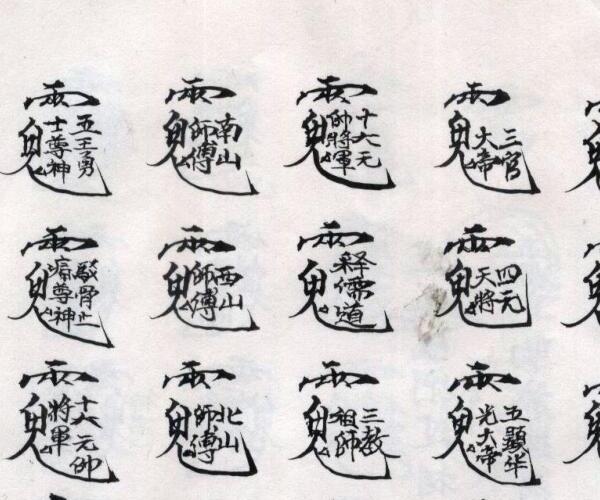 雨鬼三官大帝
雨鬼四元天將
雨鬼五顯华光大帝
雨鬼十六元帥將軍
雨鬼释儒道
雨鬼三教祖師
雨鬼南山師傅
雨鬼西山師傅
雨鬼北山師傅
雨鬼五王勇士尊神
雨鬼駁骨止痛尊神
雨鬼十六元帥將軍